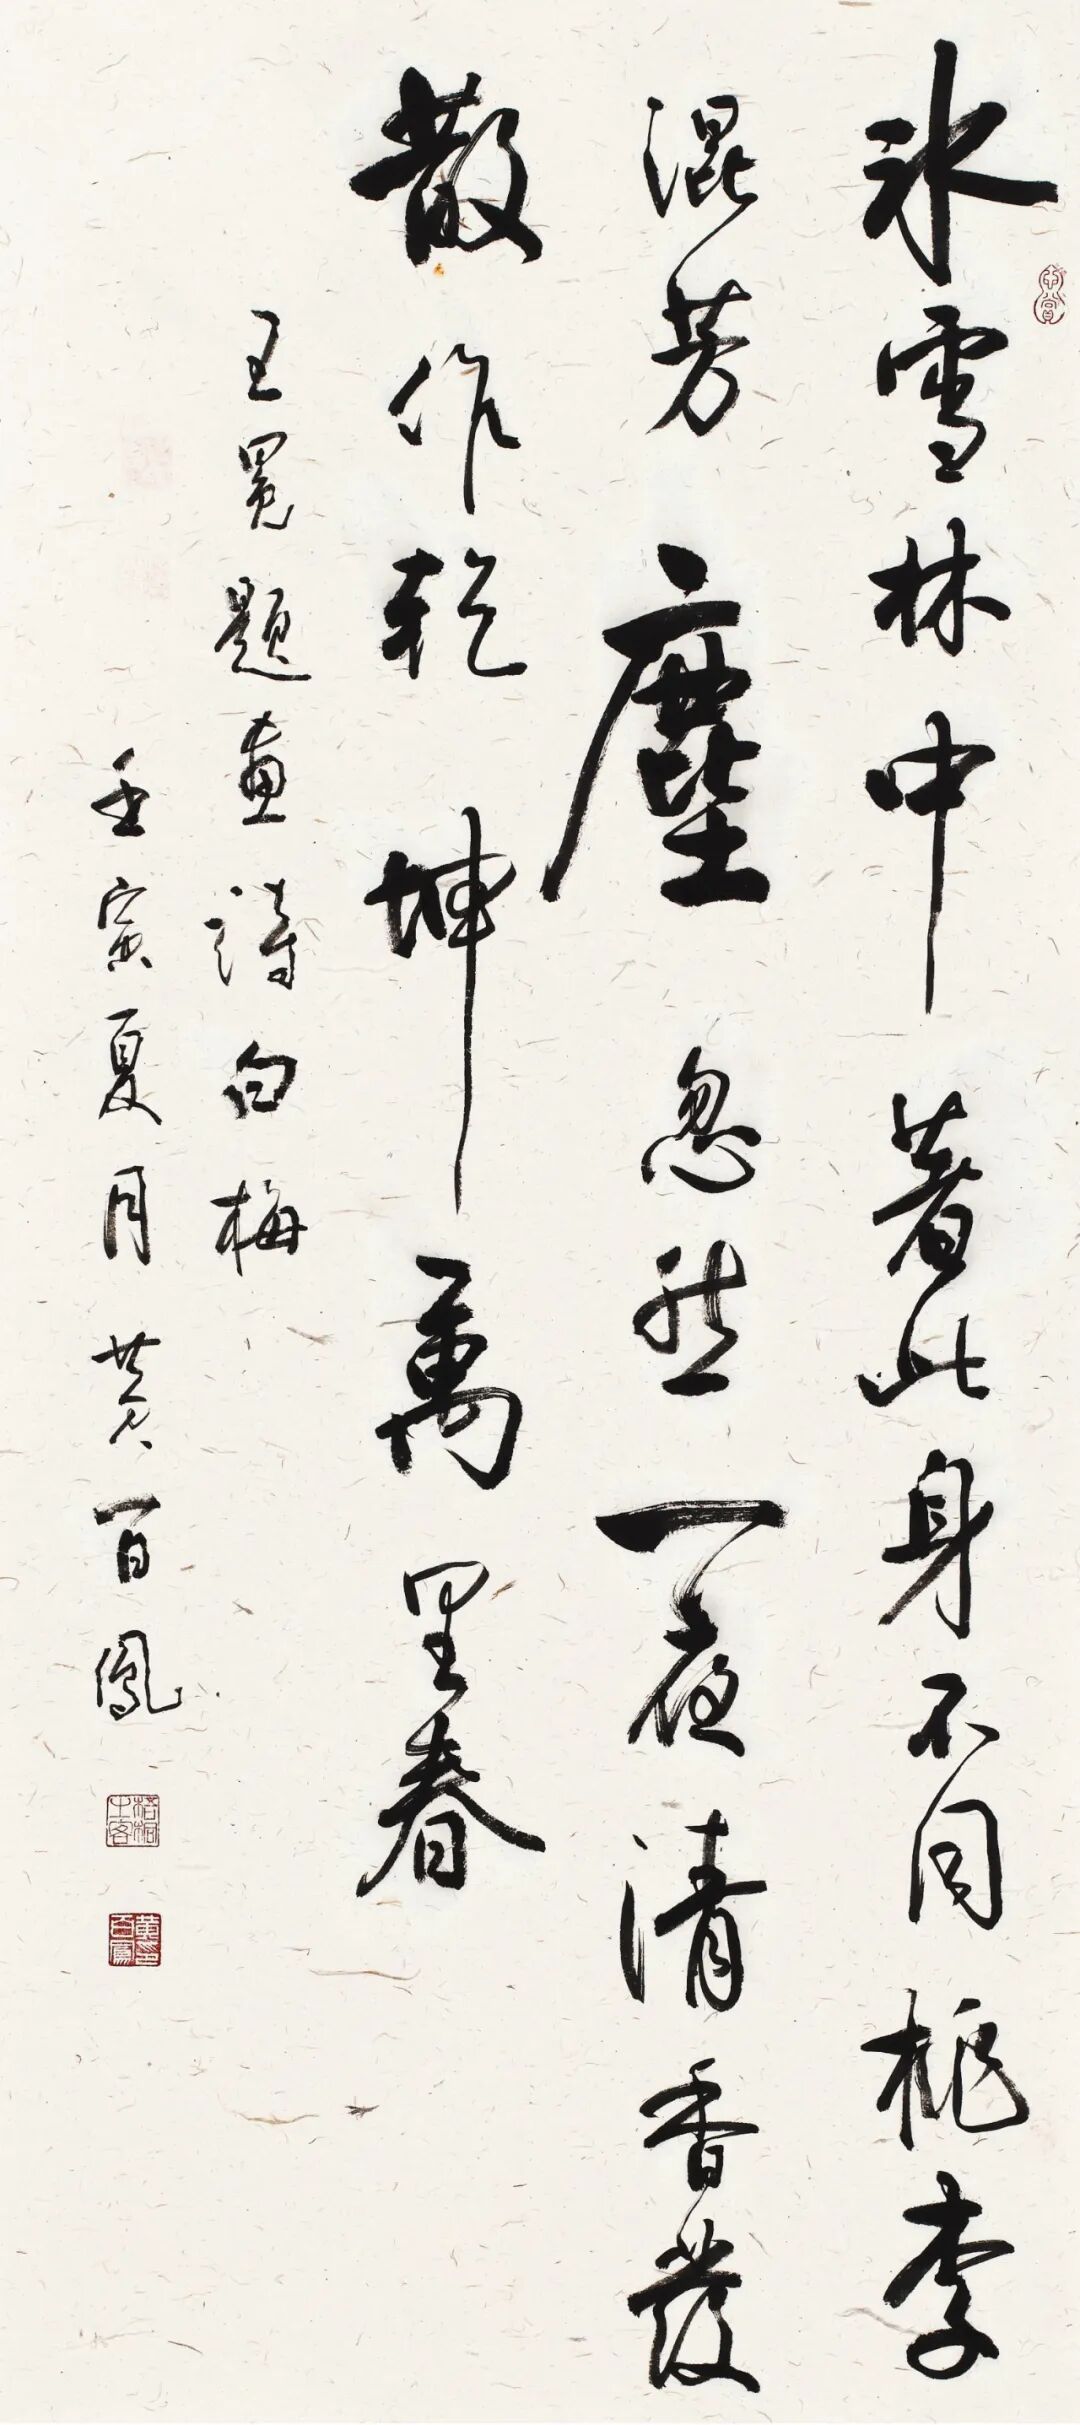 冰雪林中著此身不同桃李
混芳塵忽然一夜清香發
散作乾坤萬里春
王冕題畫詩白梅
壬寅夏月黄百鳳